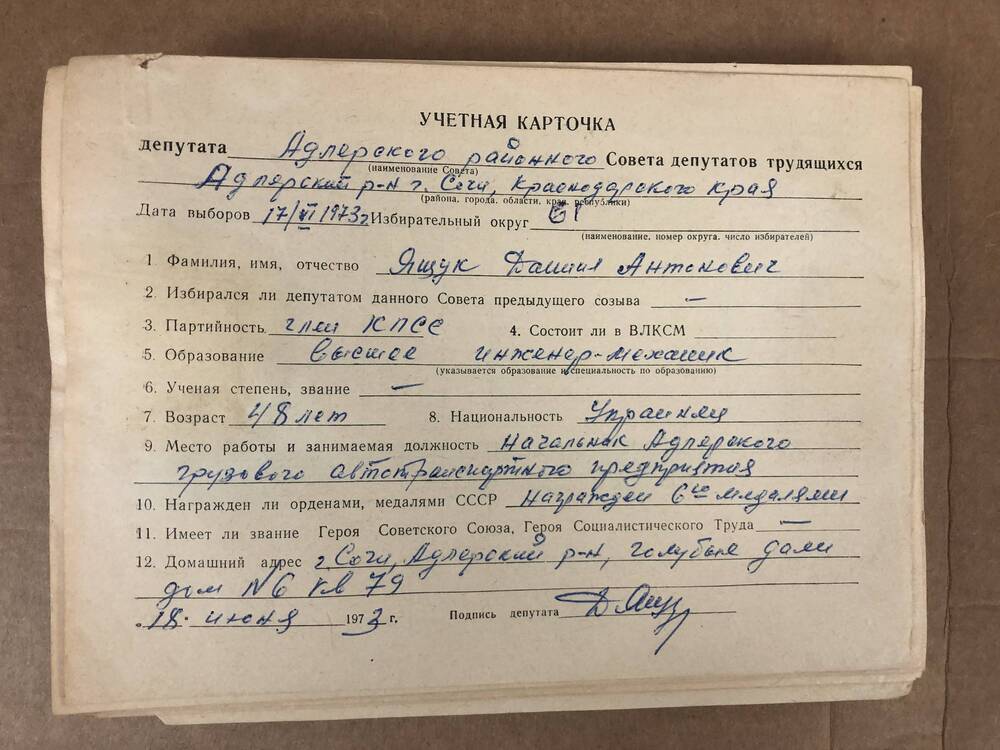 УЧЕТНАЯ КАРТОЧКА
депутата Адлерского районного Совета депутатов трудящихся
(наименование Совета)
Адлерский р-н г. Сочи, Краснодарского края
(района, города, области, края, республики)
Дата выборов 17/VI 1973г Избирательный округ 61
(наименование, номер округа, число избирателей)
1. Фамилия, имя, отчество Ящук Даниил Антонович
2. Избирался ли депутатом данного Совета предыдущего созыва —
3. Партийность член КПСС 4. Состоит ли в ВЛКСМ
5. Образование высшее инженер-механик
(указывается образование и специальность по образованию)
6. Ученая степень, звание —
7. Возраст 48 лет 8. Национальность Украинец
9. Место работы и занимаемая должность Начальник Адлерского
грузового автотранспортного предприятия
10. Награжден ли орденами, медалями СССР награжден 6ью медалями
11. Имеет ли звание Героя Советского Союза, Героя Социалистического Труда —
12. Домашний адрес г Сочи, Адлерский р-н, голубые дали
дом №6 кв 79
„18. июня 1973 г. Подпись депутата Д Ящу